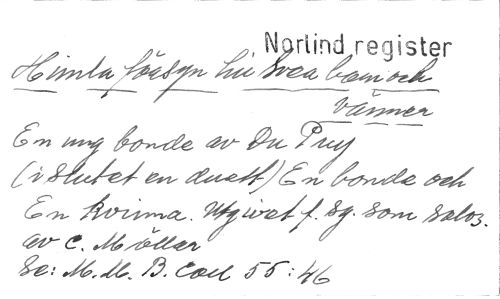 Norlind register
Himla försyn hu Svea barn och
vänner
En ung bonde av Du Puy
(i slutet en duett) En bonde och
En kvinna. Utgivet f. sg. som solos.
av C. Möller
Se: M. M. B. Coll 55:46